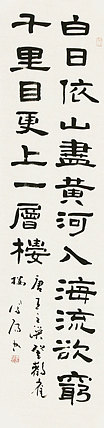 白日依山盡黃河入海流欲窮
千里目更上一層樓
唐王之渙登鸛雀
樓